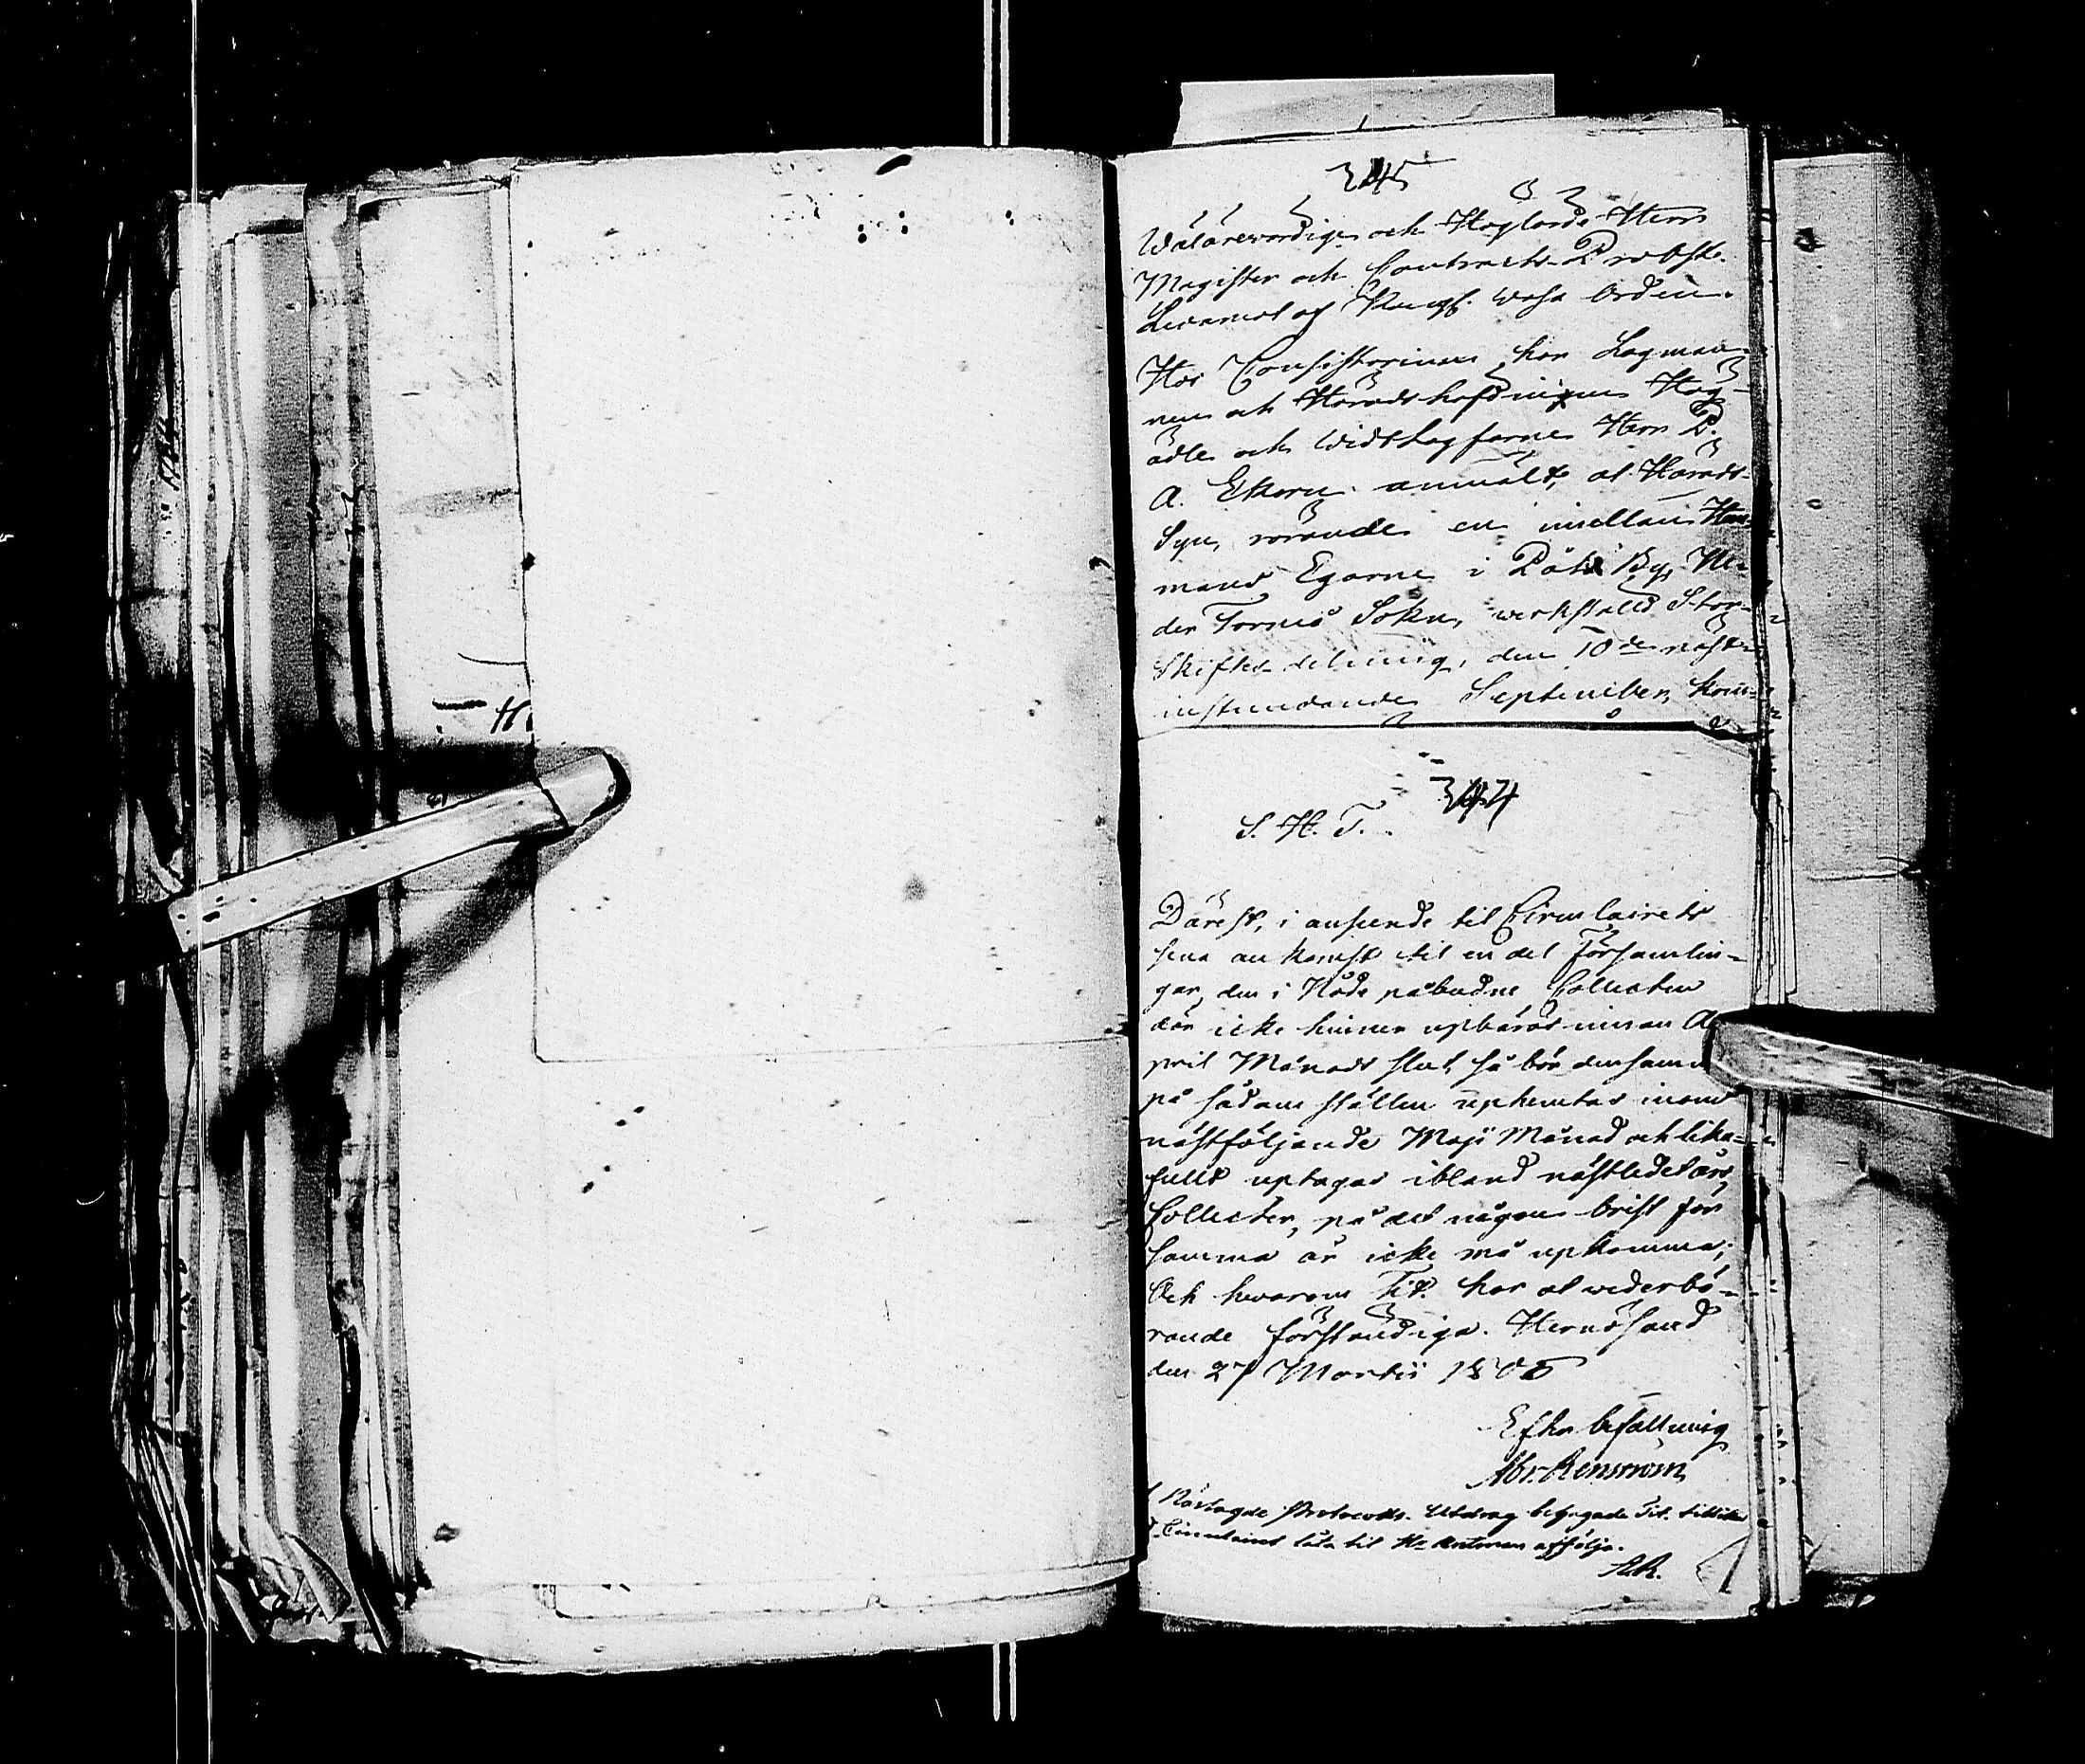 345
Wälärevördige och Höglärde Herr
Magister och Contracts-Probste.
Ledamot af Kongl. Wasa Orden.
Hos Consistorium har Lagman-
nen och Häradshöfdingen Hög-
ädle och Widtlagfarne Herr P.
A. Ekorn anmält, at Härads-
Syn, rörande en emellan Hem-
mans Egarne i Päkk By, Ne-
der Torneå Sokn, werkställd Stor-
Skiftes-delning, den 10de näst-
instundande September, kom-
H
344
S. H. T.
Därest, i anseende til Circulairets
sena ankomst til en del Församlin-
gar, den i Nåde påbudne Collecten
där icke hinner upbäras innan A-
pril Månads slut, så bör densamm
på sådane ställen uphemtas inom
nästföljande Maji Månad och lika-
fullt uptagas ibland nästledet års
Collecter, på det någon brist för
samma år icke må upkomma;
Och hvarom Tit. har at wederbö-
rande förständiga. Hernösand
den 27 Martii 1805
Efter befallning
Abr. Renström
Närlagde Protocolls-Utdrag behagade Tit. tillika
Circulairet låta til Hr Antman afföljа.
AR.